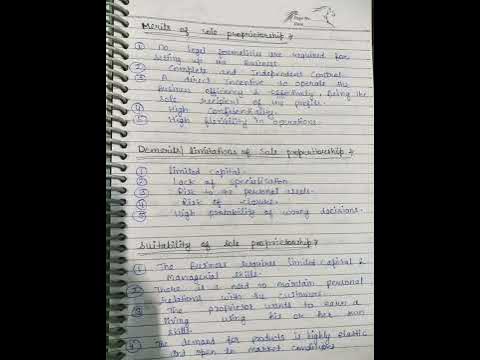 Page No.
Date
Merits of sole proprietorship :
① No legal formalities are required for
setting up the business.
② Complete and Independent Control.
③ A direct Incentive to operate the
business efficiency & effectively, being the
sole recipient of the profits.
④ High Confidentiality.
⑤ High flexibility in operations.
Demerits/ limitations of sole proprietorship :
① limited Capital.
② Lack of specialisation
③ Risk to the personal assets.
④ Risk of closure.
⑤ High probability of wrong decisions.
Suitability of sole proprietorship :
① The Business requires limited capital &
Managerial skills.
② There is a need to maintain personal
relations with the customers.
③ The proprietor wants to earn a
living using his or her own
skills.
④ The demand for products is highly elastic
and open to market conditions